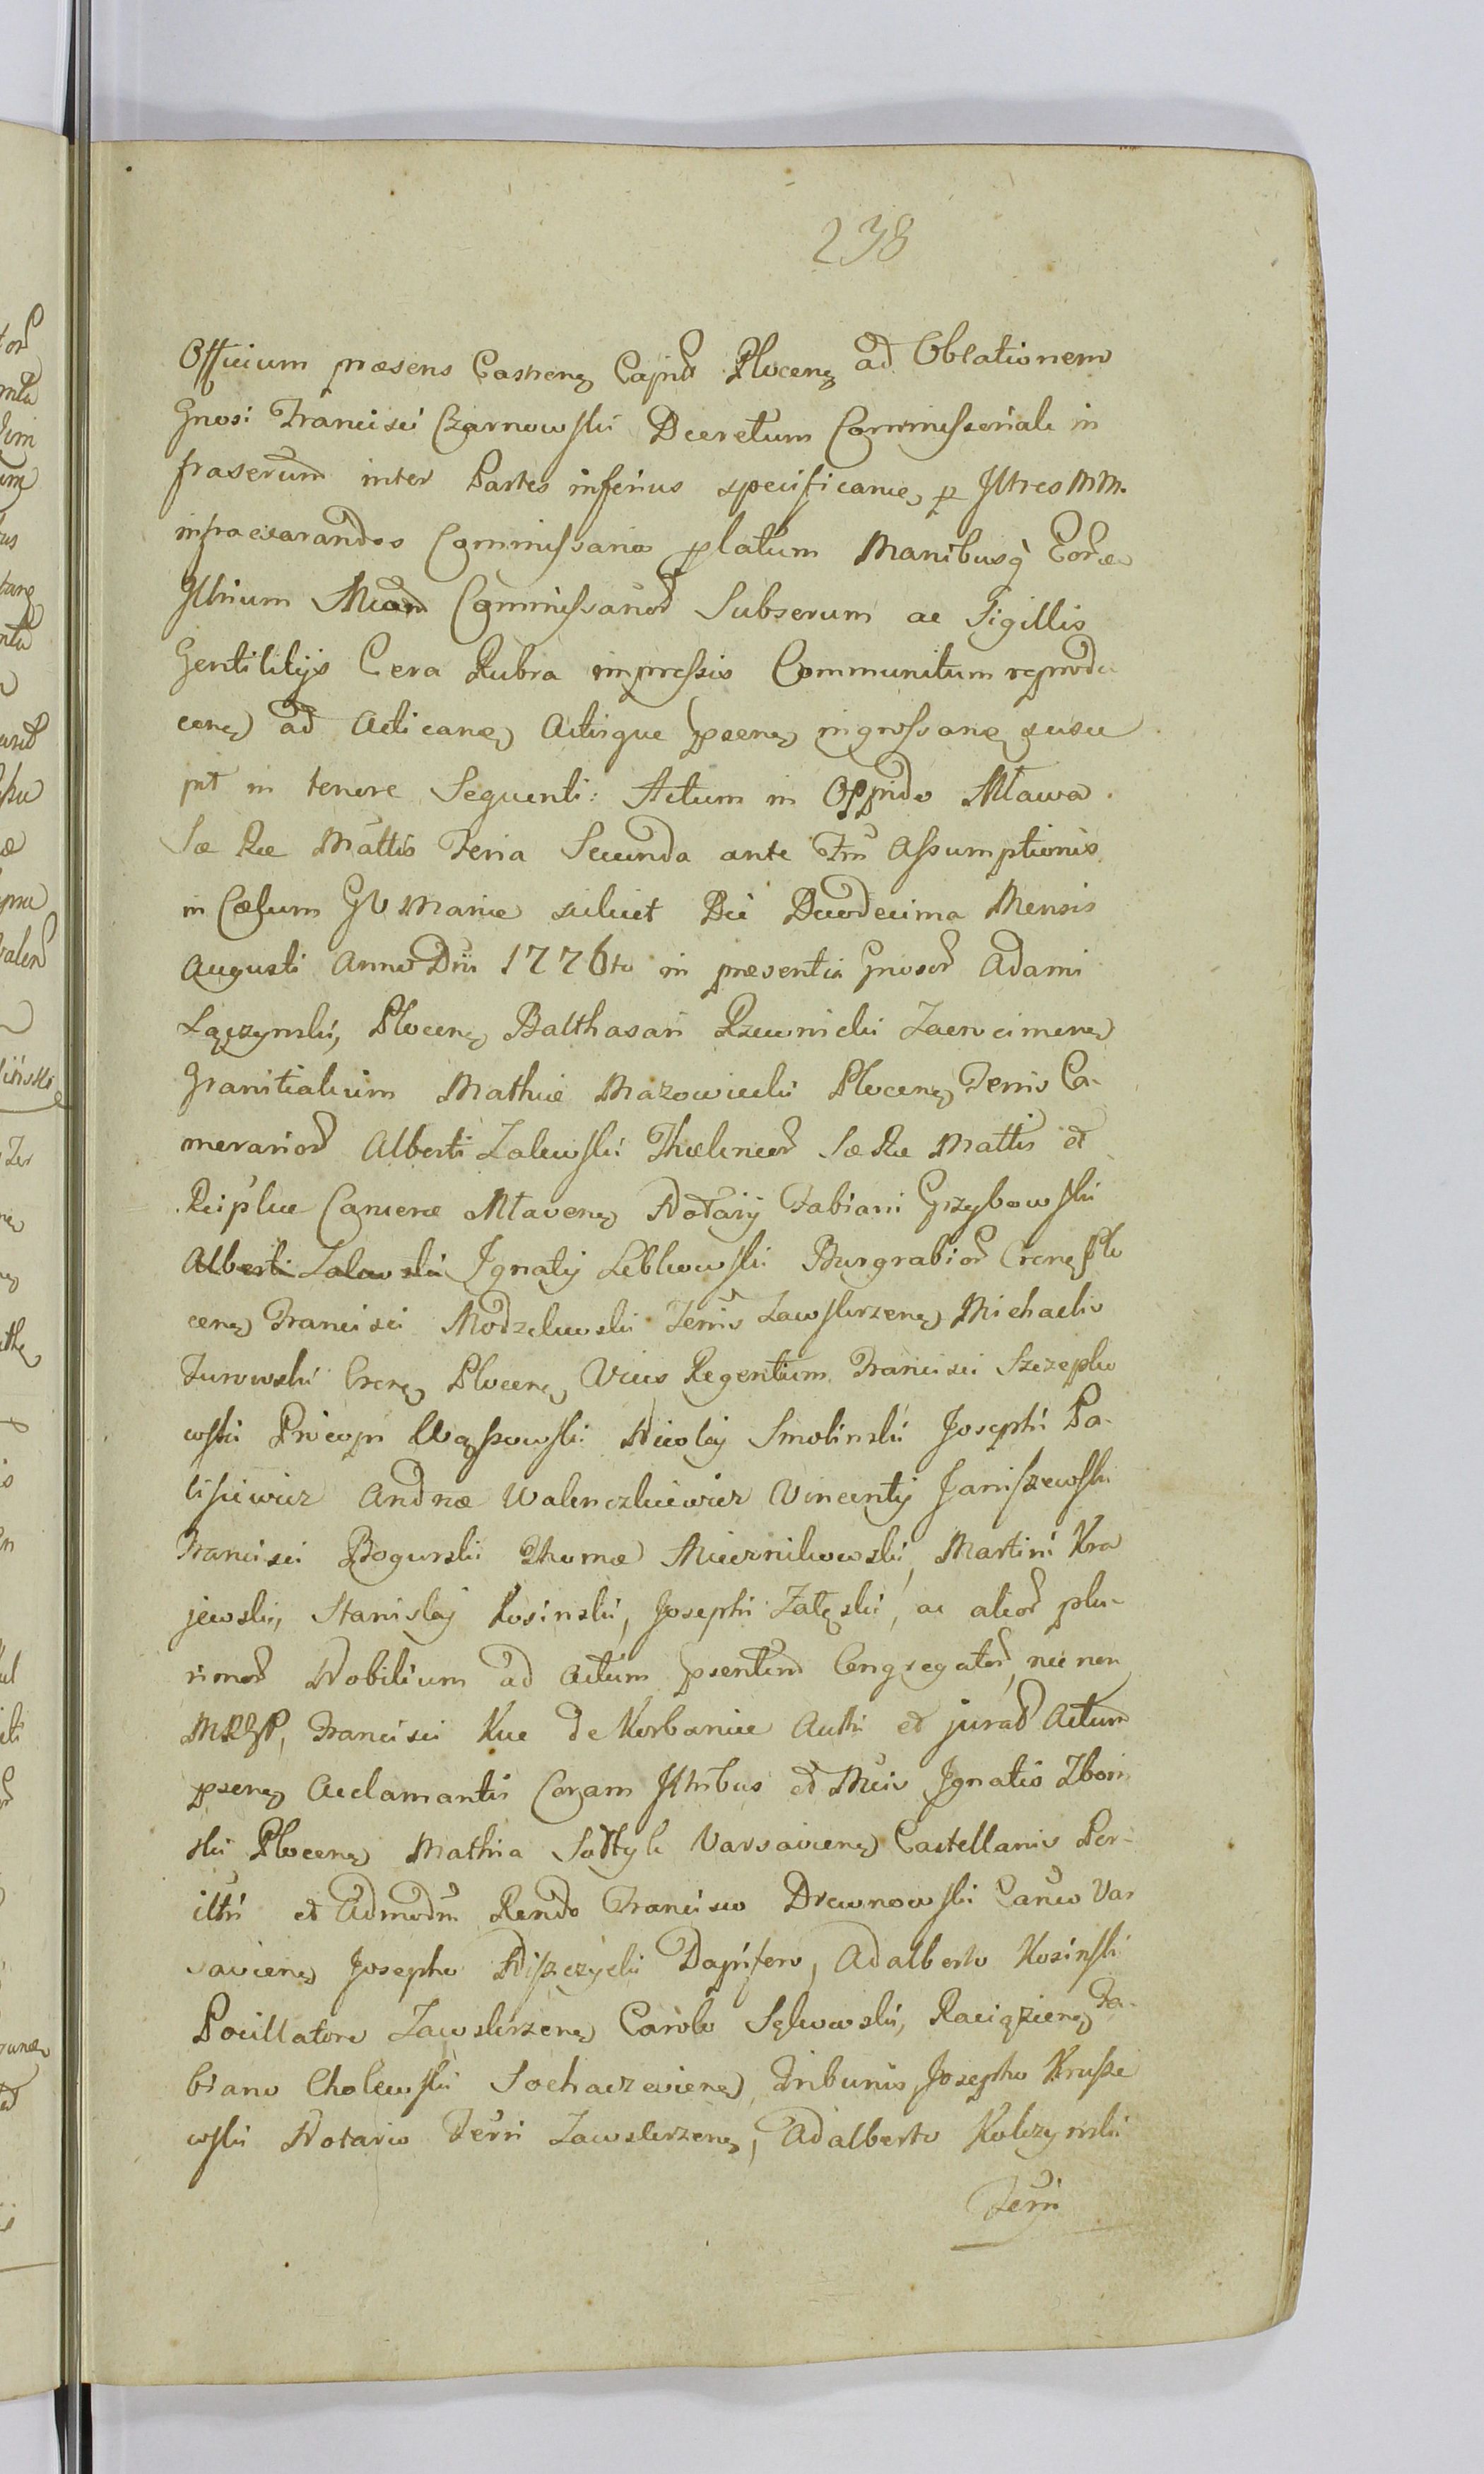 238
Officium præsens Castrenę Capnd Plocenę ad Oblationem
Gnosi Francisci Czarnowski Decretum Commissoriale in
frascrum inter Partes inferius specificanę p Jlltres MM.
infraexarandos Commissarios platum Manibusq Eord
Jlltrium Mcor Commissariord Subscrum ac Sigillis
Gentilitijs Cera Rubra impressis Communitum reprodu
cenę ad Acticanę Actisque psenę ingrossanę susce
pit in tenore Sequenti: Actum in Oppido Mława
Sæ Ræ Mattis Feria Secunda ante Fm Assumptionis
in Cælum GV Mariæ scilicet Die Duodecima Mensis
Augusti Anno Dni 1776to in præsentia Gnosord Adami
Łączynski, Plocenę Balthasari Rzewnicki Zacrocimenę
Granitialium Mathiæ Mazowiecki Plocenę Terris Ca-
merariord Alberti Zalewski Theloneord Sæ Ræ Mattis et
Reiplcæ Cameræ Mlavenę Notarij Fabiani Grzybowski
Alberti Zalewski Ignatij Leblowski Burgrabiord Crenę Plo
cenę Francisci Modzelewski Terris Zawskrzenę Michaelis
Turowski Crenę Plocenę Vices Regentium Francisci Szczepko
wski Procopi Wąssowski Nicolaj Smolinski Josephi Pa-
lisiewicz Andreæ Walenczkiewicz Vincentij Janiszewski
Francisci Bogurski Thomæ Miecznikowski, Martini Kra
jewski, Stanislaj Kosinski, Josephi Załęski, ac aliord plu-
rimord Nobilium ad Actum psentem Congregatord, nec non
MRGP, Francisci Kuc de Korbanice Auth et jurad Actum
psenę Acclamantis Coram Jlltribus et Mcis Ignatio Zboin
ski Plocenę Mathia Sołtyk Varsavienę Castellanis Per-
illri et Admodm Rendo Francisco Drewnowski Canco Var
savienę Josepho Niszczycki Dapifero, Adalberto Kosinski
Pocillatore Zawskrzenę Carolo Sękowski, Raciązienę Fa-
biano Cholewski Sochaczevienę Tribunis, Josepho Krusze
wski Notario Terri Zawskrzenę, Adalberto Kolczynski
Terri